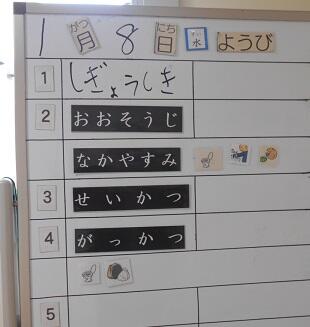 1 月 8 日 水 ようび
がつ にち すい
1 しぎょうしき
2 おおそうじ
なかやすみ
3 せいかつ
4 がっかつ
5